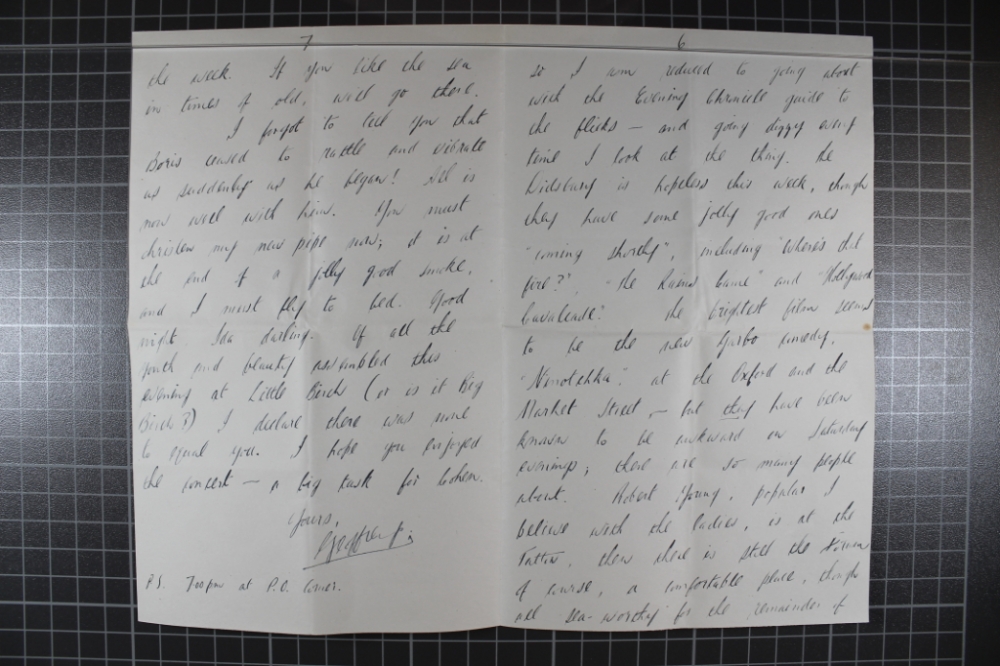 6
so I am reduced to going about
with the Evening Chronicle guide to
the flicks — and going dizzy every
time I look at the thing. The
Didsbury is hopeless this week, though
they have some jolly good ones
"coming shortly", including "Where's that
fire?", "The Rains Came" and "Hollywood
Cavalcade". The brightest film seems
to be the new Garbo comedy,
"Ninotchka", at the Oxford and the
Market Street, — but they have been
known to be awkward on Saturday
evenings; there are so many people
about. Robert Young, popular I
believe with the ladies, is at the
Tatton, then there is still the
of course, a comfortable place, though
all sea-worthy for the remainder of
7
the week. If you like the sea
in times of old, we'll go there.
I forgot to tell you that
Boris ceased to rattle and vibrate
as suddenly as he began! All is
now well with him. You must
christen my new pipe now; it is at
the end of a jolly good smoke,
and I must fly to bed. Good
night Ida darling. Of all the
youth and beauty assembled this
evening at Little Birch (or is it Big
Birch?) I declare there was none
to equal you. I hope you enjoyed
the concert — a big task for Cohen.
Yours,
Geoffrey.
P.S. 7.00pm at P.O. corner.